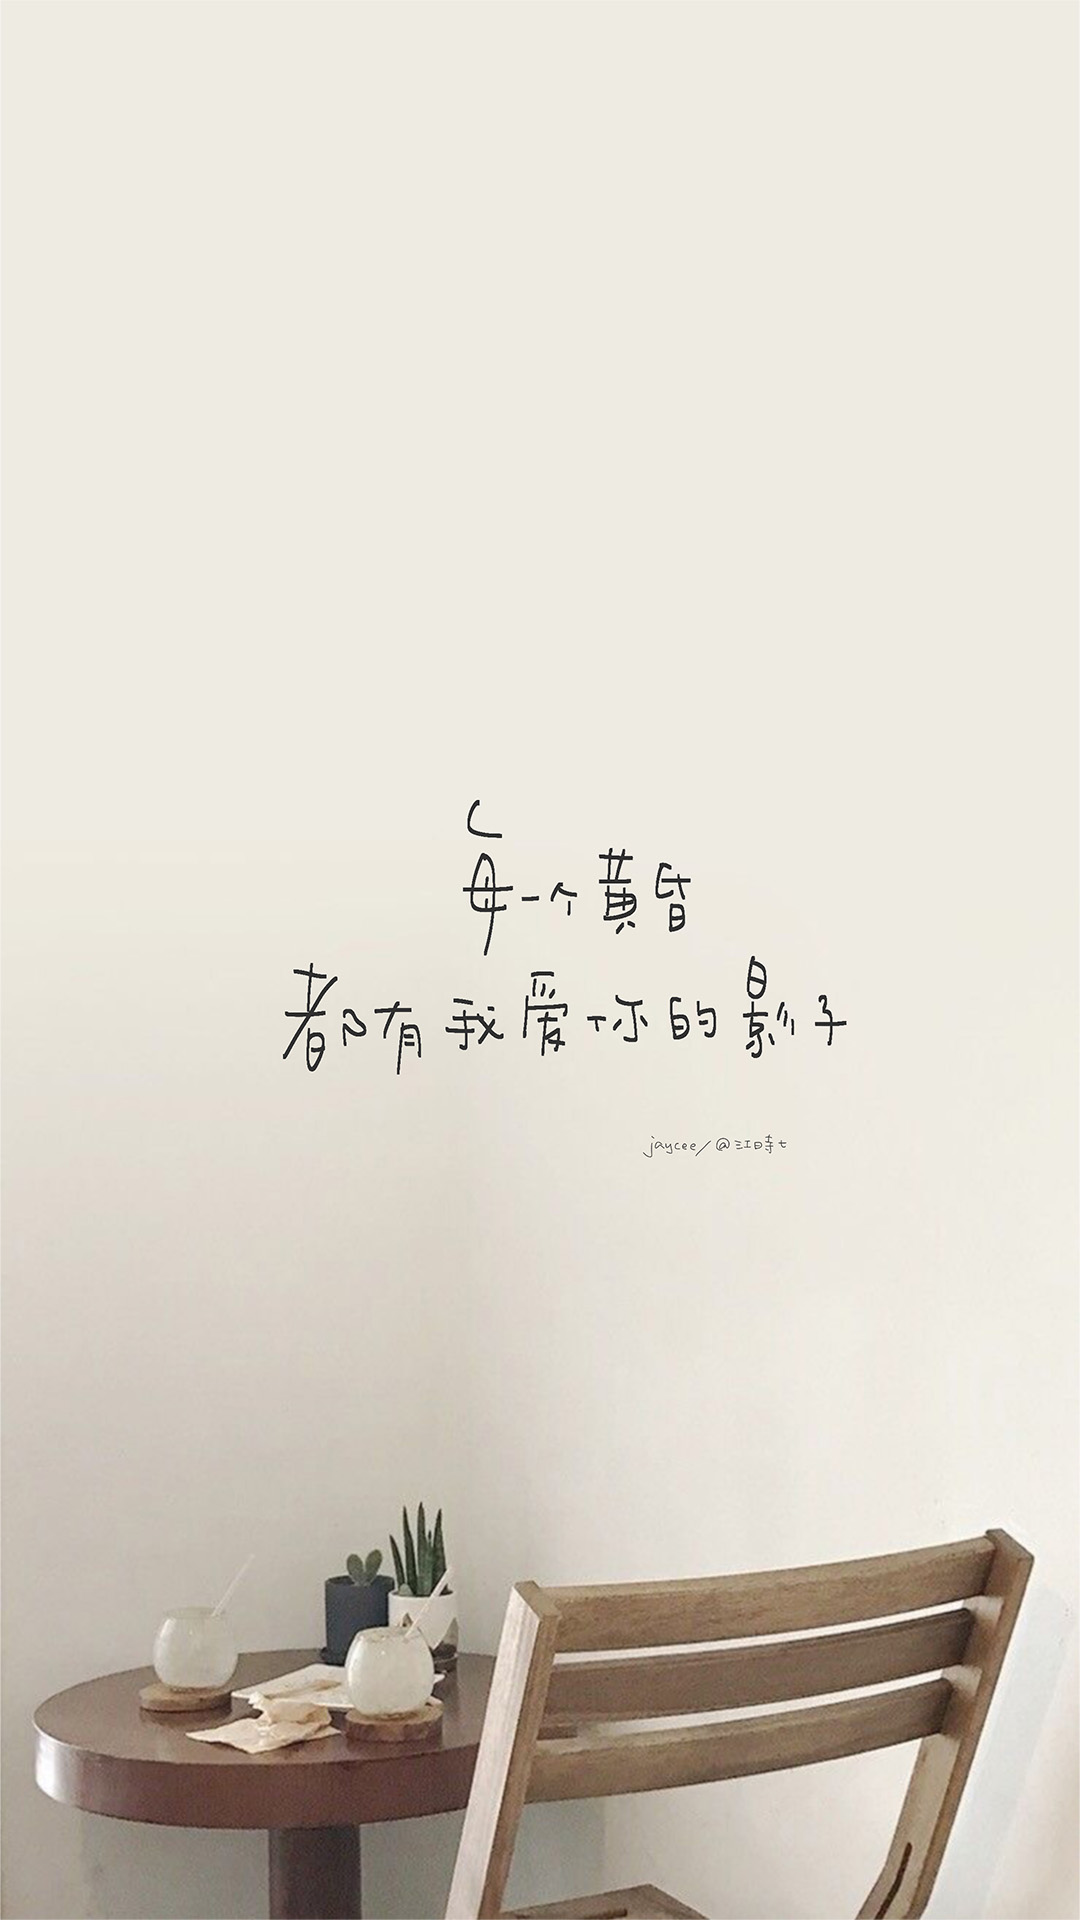 每一个黄昏
都有我爱你的影子
jaycee/@江時七